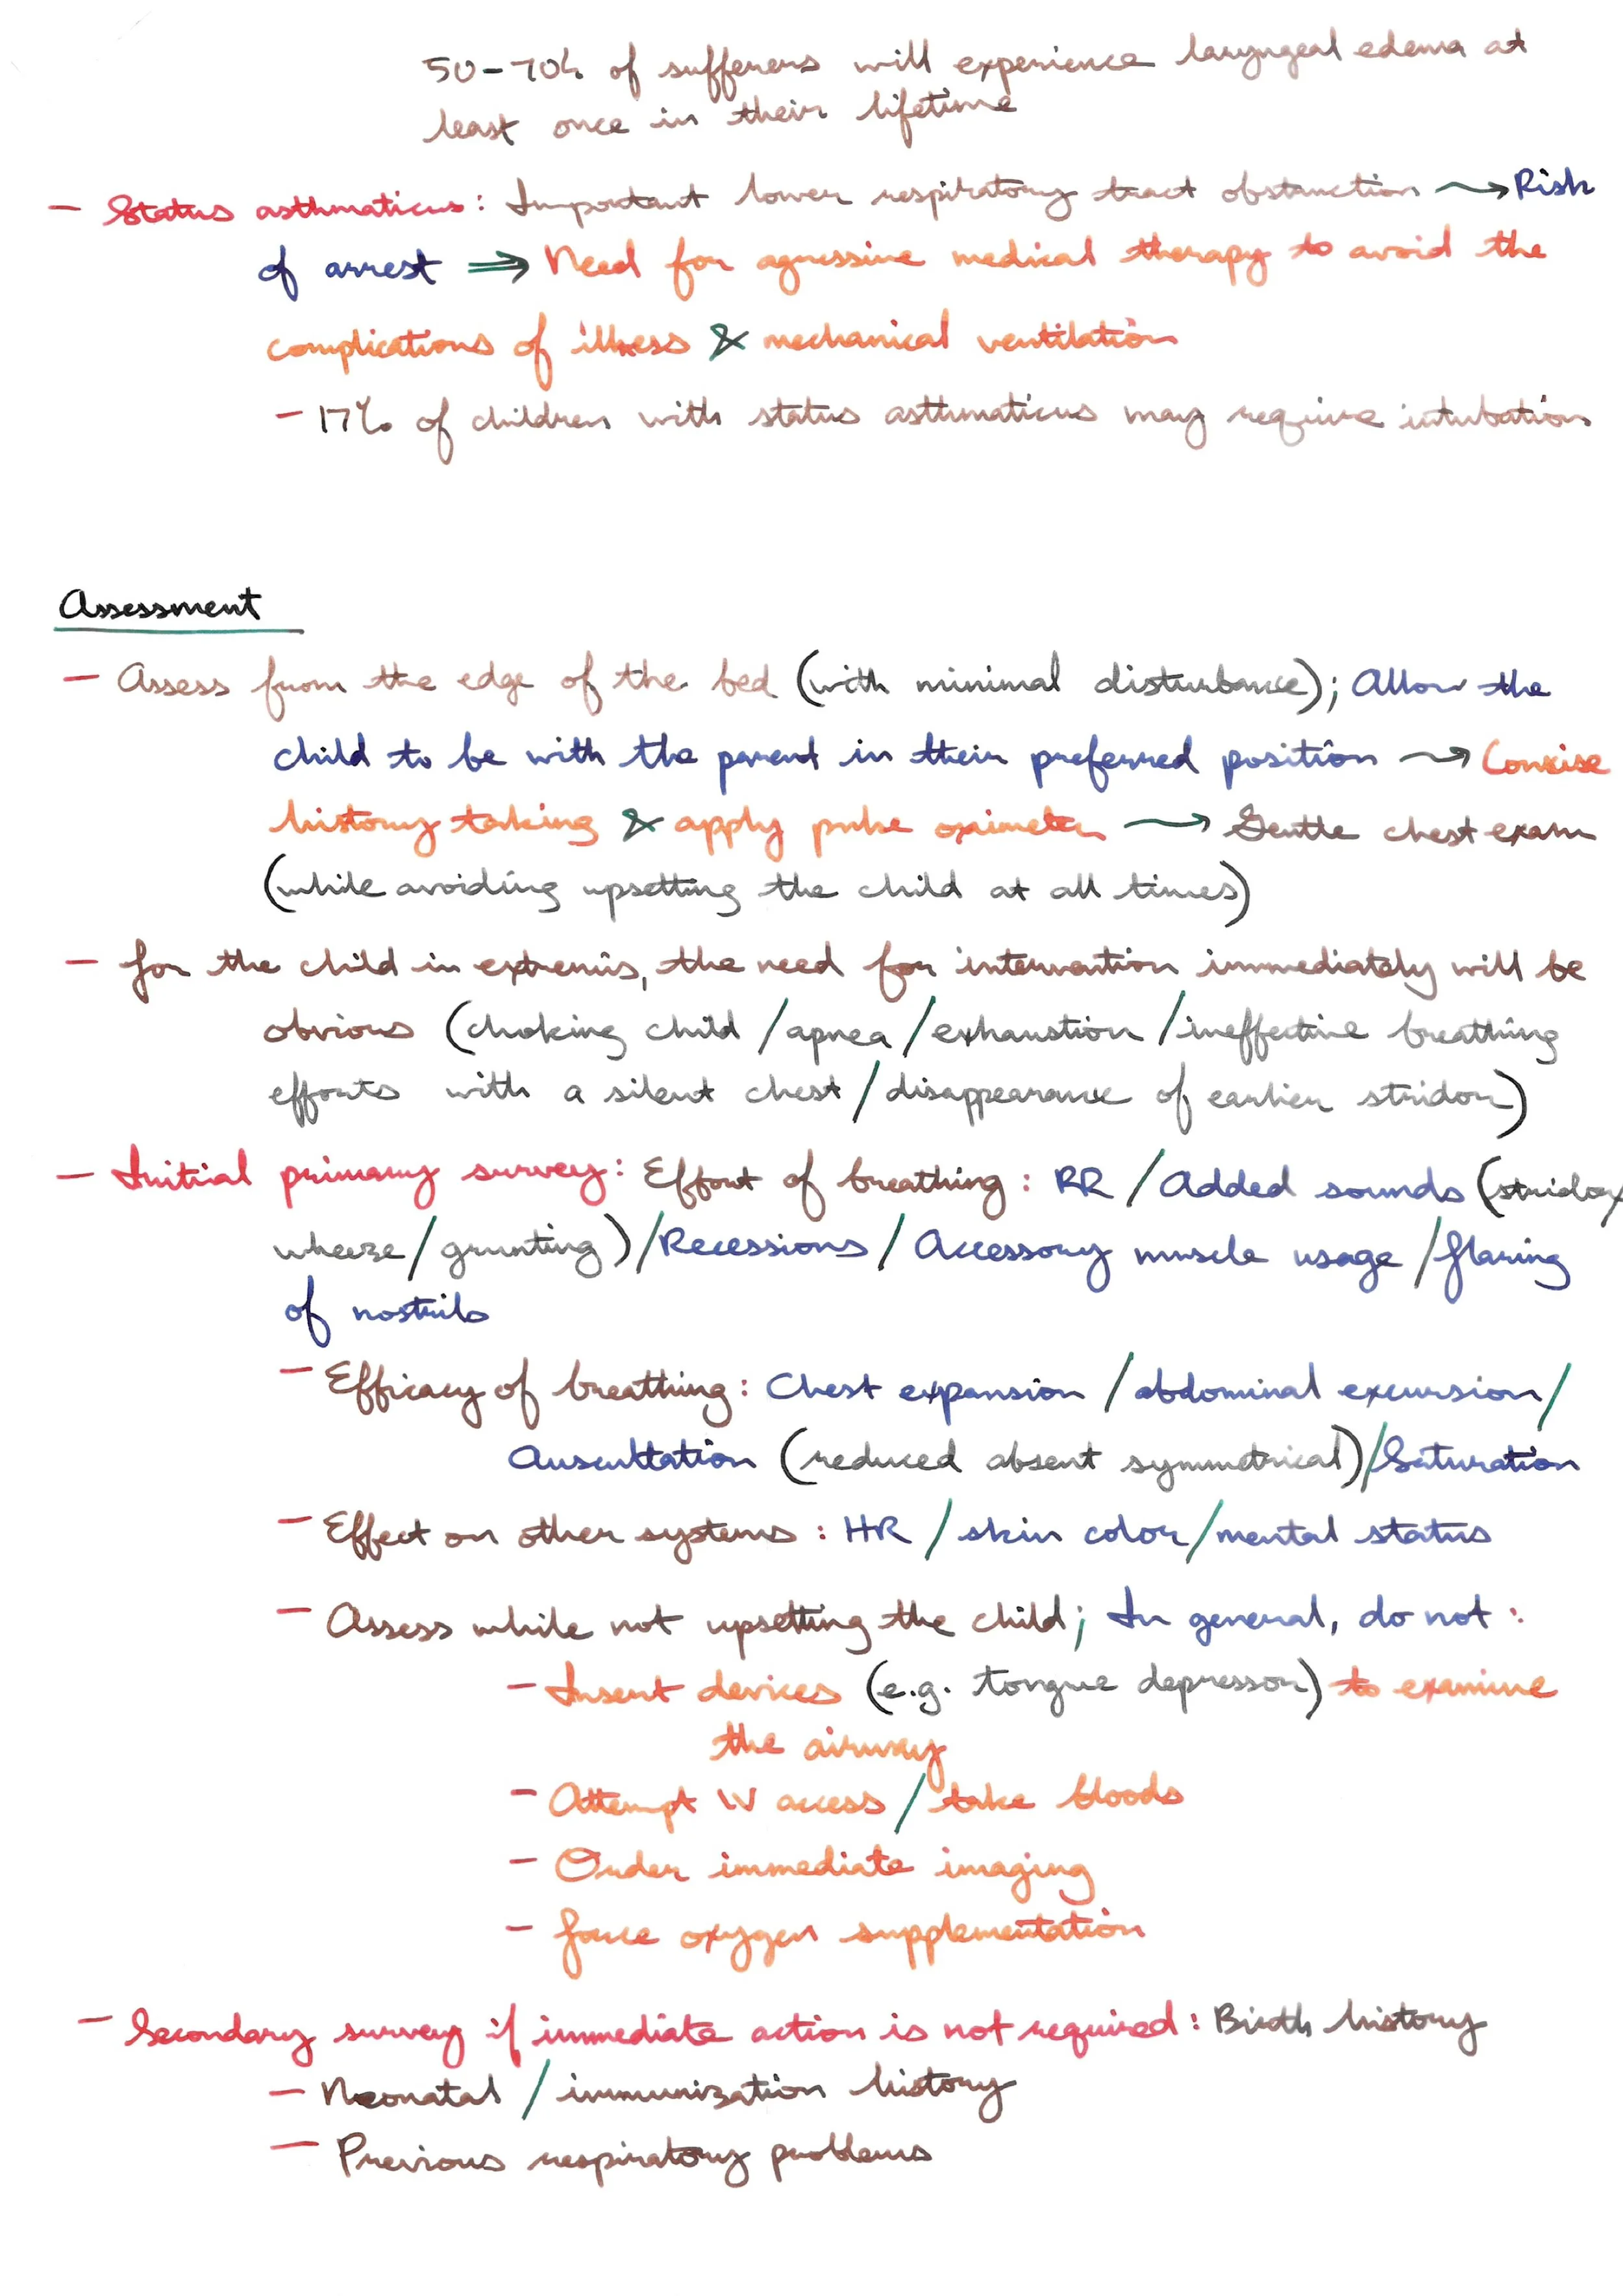 50-70% of sufferers will experience laryngeal edema at
least once in their lifetime
- Status asthmaticus: Important lower respiratory tract obstruction ⟶ Risk
of arrest ⟹ Need for agressive medical therapy to avoid the
complications of illness & mechanical ventilation
- 17% of children with status asthmaticus may require intubation
Assessment
- Assess from the edge of the bed (with minimal disturbance); Allow the
child to be with the parent in their preferred position ⟶ Concise
history taking & apply pulse oximeter ⟶ Gentle chest exam
(while avoiding upsetting the child at all times)
- For the child in extremis, the need for intervention immediately will be
obvious (choking child / apnea / exhaustion / ineffective breathing
efforts with a silent chest / disappearance of earlier stridor)
- Initial primary survey: Effort of breathing: RR / Added sounds (stridor/
wheeze / grunting) / Recessions / Accessory muscle usage / flaring
of nostrils
- Efficacy of breathing: Chest expansion / abdominal excursion /
Auscultation (reduced absent symmetrical) / Saturation
- Effect on other systems: HR / skin color / mental status
- Assess while not upsetting the child; In general, do not:
- Insert devices (e.g. tongue depressor) to examine
the airway
- Attempt IV access / take bloods
- Order immediate imaging
- Force oxygen supplementation
- Secondary survey if immediate action is not required: Birth history
- Neonatal / immunization history
- Previous respiratory problems